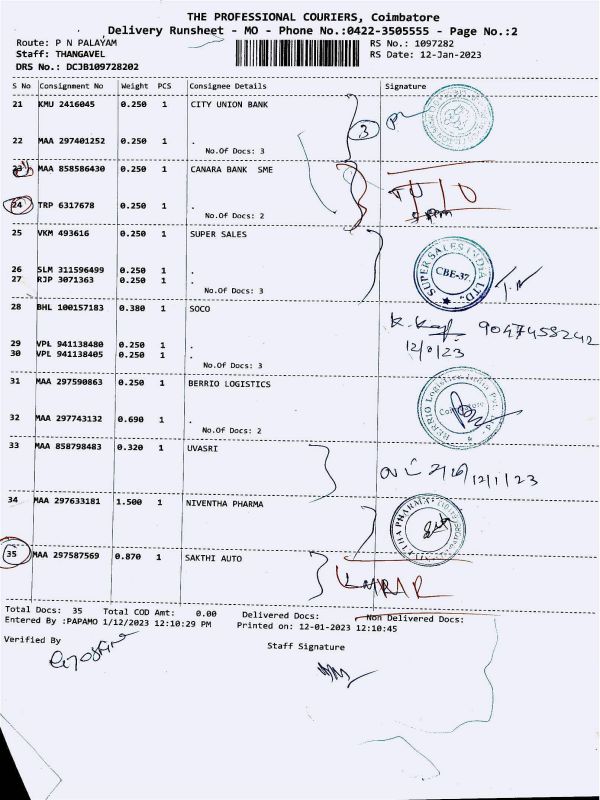 THE PROFESSIONAL COURIERS, Coimbatore
Delivery Runsheet - MO - Phone No.:0422-3505555 - Page No.:2
Route: P N PALAYAM RS No.: 1097282
Staff: THANGAVEL RS Date: 12-Jan-2023
DRS No.: DCJB109728202
S No Consignment No Weight PCS Consignee Details Signature
21 KMU 2416045 0.250 1 CITY UNION BANK
3
22 MAA 297401252 0.250 1 .
No.Of Docs: 3
23 MAA 858586430 0.250 1 CANARA BANK SME
24 TRP 6317678 0.250 1 .
No.Of Docs: 2
25 VKM 493616 0.250 1 SUPER SALES
SUPER SALES INDIA LTD. CBE-37.
26 SLM 311596499 0.250 1 .
27 RJP 3071363 0.250 1 .
No.Of Docs: 3
28 BHL 100157183 0.380 1 SOCO
9047458242
29 VPL 941138480 0.250 1 .
30 VPL 941138405 0.250 1 .
No.Of Docs: 3
31 MAA 297590863 0.250 1 BERRIO LOGISTICS
BERRIO Logistics India Pvt. Ltd
32 MAA 297743132 0.690 1 .
No.Of Docs: 2
33 MAA 858798483 0.320 1 UVASRI
12/1/23
34 MAA 297633181 1.500 1 NIVENTHA PHARMA
35 MAA 297587569 0.870 1 SAKTHI AUTO
Total Docs: 35 Total COD Amt: 0.00 Delivered Docs: Non Delivered Docs:
Entered By :PAPAMO 1/12/2023 12:10:29 PM Printed on: 12-01-2023 12:10:45
Verified By Staff Signature